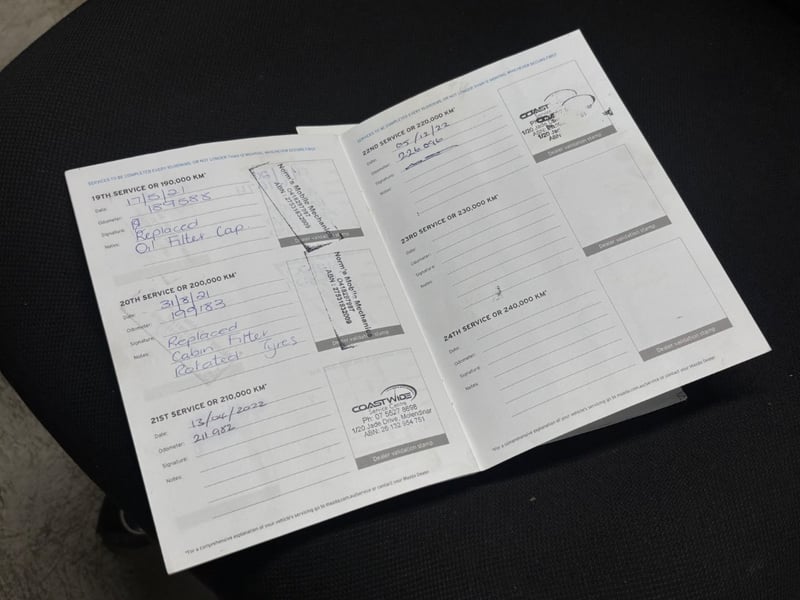 SERVICES TO BE COMPLETED EVERY 10,000KMS, OR NOT LONGER THAN 12 MONTHS, WHICHEVER OCCURS FIRST
19TH SERVICE OR 190,000 KM*
Date: 17/5/21
Odometer: 189588
Signature:
Notes: Replaced
Oil Filter Cap
Norm's Mobile Mechanic
0418297997
ABN : 27531932009
Dealer validation stamp
20TH SERVICE OR 200,000 KM*
Date: 31/8/21
Odometer: 199183
Signature:
Notes: Replaced
Cabin Filter
Rotated Tyres
Norm's Mobile Mechanic
0418297997
ABN : 27531932009
Dealer validation stamp
21ST SERVICE OR 210,000 KM*
Date: 13/04/2022
Odometer: 211982
Signature:
Notes:
COASTWIDE
Service Centre
Ph: 07 5527 8698
1/20 Jade Drive, Molendinar
ABN: 26 132 954 751
Dealer validation stamp
*For a comprehensive explanation of your vehicle's servicing go to mazda.com.au/service or contact your Mazda Dealer
SERVICES TO BE COMPLETED EVERY 10,000KMS, OR NOT LONGER THAN 12 MONTHS, WHICHEVER OCCURS FIRST
22ND SERVICE OR 220,000 KM*
Date: 05/12/22
Odometer: 226096
Signature:
Notes:
COAST
1/20 Jade
ABN
Dealer validation stamp
23RD SERVICE OR 230,000 KM*
Date:
Odometer:
Signature:
Notes:
Dealer validation stamp
24TH SERVICE OR 240,000 KM*
Date:
Odometer:
Signature:
Notes:
Dealer validation stamp
*For a comprehensive explanation of your vehicle's servicing go to mazda.com.au/service or contact your Mazda Dealer